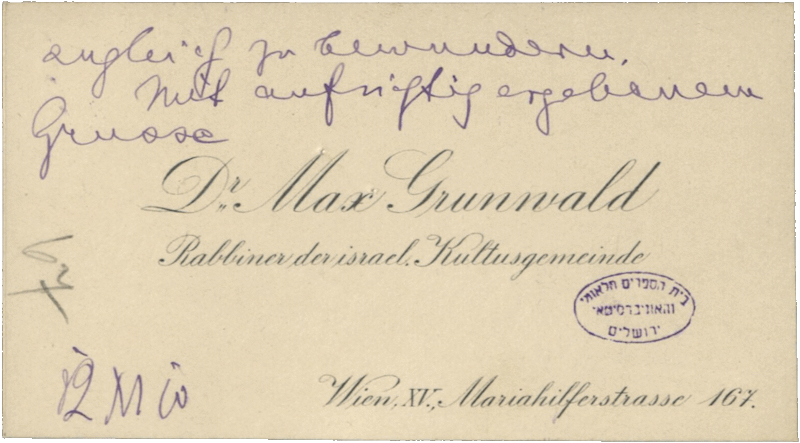 zugleich zu bewundern.
Mit aufrichtig ergebenem
Grusse
Dr. Max Grunwald
Rabbiner der israel. Kultusgemeinde
בית הספרים הלאומי
והאוניברסיטאי
ירושלים
12 XI 10
Wien, XV., Mariahilferstrasse 167.